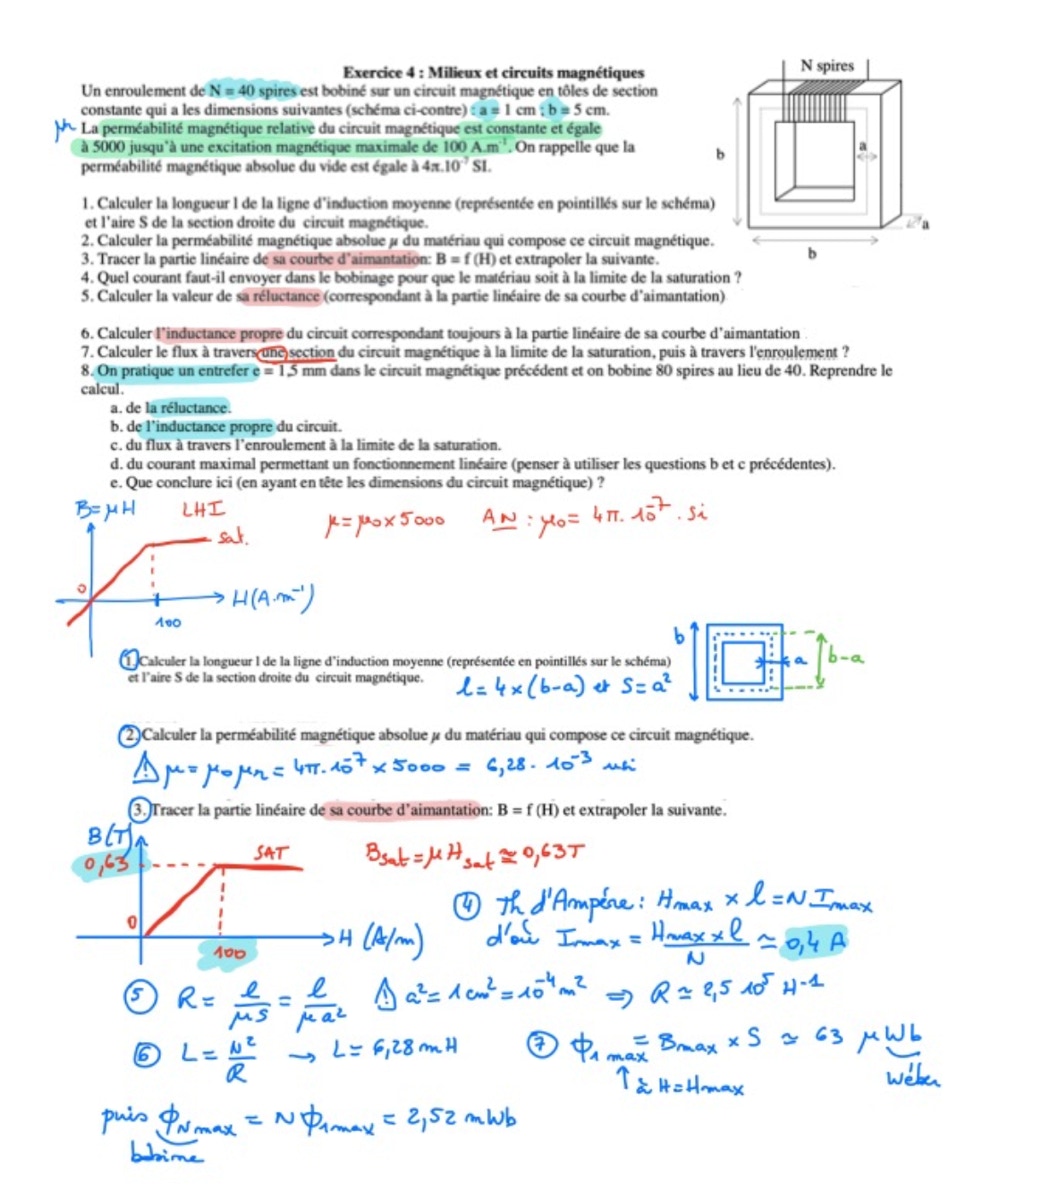 Exercice 4 : Milieux et circuits magnétiques
Un enroulement de N = 40 spires est bobiné sur un circuit magnétique en tôles de section
constante qui a les dimensions suivantes (schéma ci-contre) : a = 1 cm ; b = 5 cm.
μr La perméabilité magnétique relative du circuit magnétique est constante et égale
à 5000 jusqu'à une excitation magnétique maximale de 100 A.m⁻¹. On rappelle que la
perméabilité magnétique absolue du vide est égale à 4π.10⁻⁷ SI.
N spires
b
a
a
b
1. Calculer la longueur l de la ligne d'induction moyenne (représentée en pointillés sur le schéma)
et l'aire S de la section droite du circuit magnétique.
2. Calculer la perméabilité magnétique absolue μ du matériau qui compose ce circuit magnétique.
3. Tracer la partie linéaire de sa courbe d'aimantation: B = f (H) et extrapoler la suivante.
4. Quel courant faut-il envoyer dans le bobinage pour que le matériau soit à la limite de la saturation ?
5. Calculer la valeur de sa réluctance (correspondant à la partie linéaire de sa courbe d'aimantation)
6. Calculer l'inductance propre du circuit correspondant toujours à la partie linéaire de sa courbe d'aimantation
7. Calculer le flux à travers une section du circuit magnétique à la limite de la saturation, puis à travers l'enroulement ?
8. On pratique un entrefer e = 1,5 mm dans le circuit magnétique précédent et on bobine 80 spires au lieu de 40. Reprendre le
calcul.
a. de la réluctance.
b. de l'inductance propre du circuit.
c. du flux à travers l'enroulement à la limite de la saturation.
d. du courant maximal permettant un fonctionnement linéaire (penser à utiliser les questions b et c précédentes).
e. Que conclure ici (en ayant en tête les dimensions du circuit magnétique) ?
B=μH LHI
sat.
μ=μ₀×5000 AN : μ₀= 4π.10⁻⁷.Si
0
100
H(A.m⁻¹)
1. Calculer la longueur l de la ligne d'induction moyenne (représentée en pointillés sur le schéma)
et l'aire S de la section droite du circuit magnétique.
l = 4×(b-a) et S=a²
b
a
b-a
2. Calculer la perméabilité magnétique absolue μ du matériau qui compose ce circuit magnétique.
⚠ μ = μ₀μr = 4π.10⁻⁷ × 5000 = 6,28.10⁻³ usi
3. Tracer la partie linéaire de sa courbe d'aimantation: B = f (H) et extrapoler la suivante.
B(T)
0,63
SAT
0
100
H (A/m)
Bsat = μHsat ≃ 0,63T
④ Th d'Ampére : Hmax × l = N Imax
d'où Imax = Hmax×l / N ≃ 0,4 A
⑤ R = l/μS = l/μa² ⚠ a²= 1cm² = 10⁻⁴m² ⇒ R ≃ 2,5 10⁵ H-1
⑥ L = N²/R → L= 6,28 mH
⑦ ϕ1 max = Bmax × S ≃ 63 μWb
↑ à H=Hmax
wéber
puis ϕNmax = Nϕ1max = 2,52 mWb
bobine